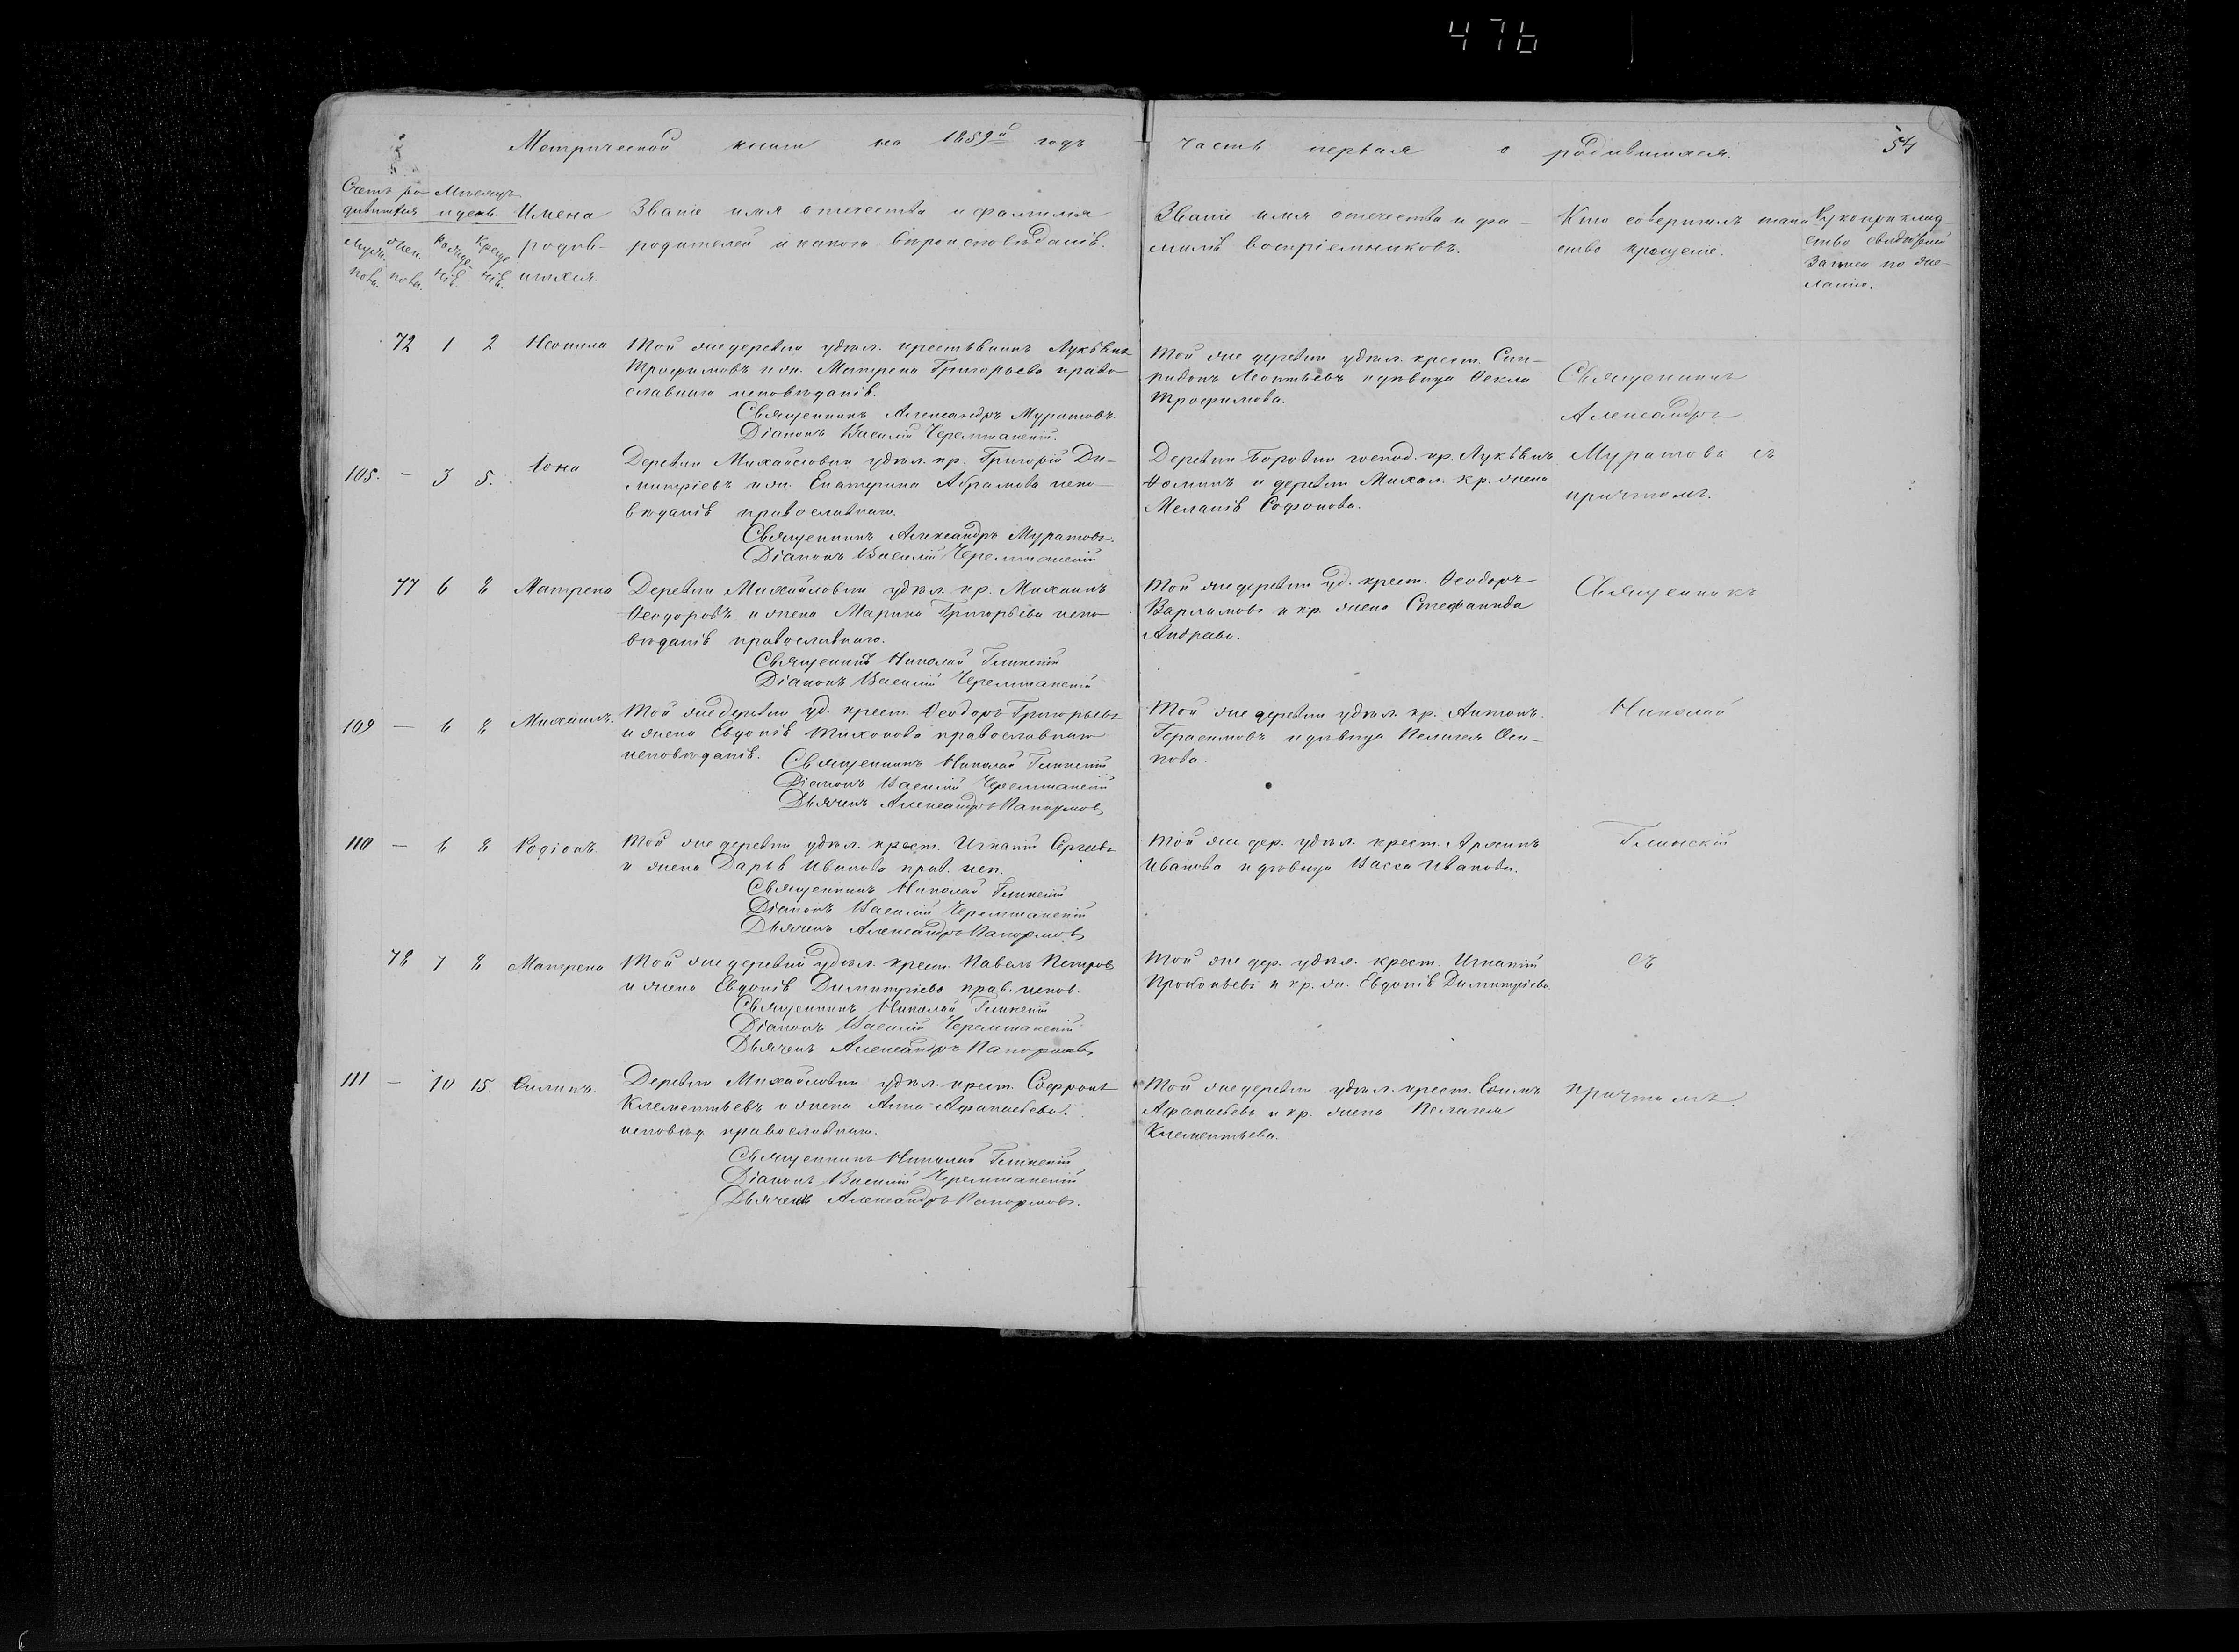 476
Метрической книги на 1859й годъ
часть первая о родившихся.
54
Счетъ ро- Месяцъ
дившихся и день. Имена Званіе имя отечество и фамилія
Мужес. Жен. Рожде- Креще- родив- родителей и какого вѣроисповѣданія.
пола. пола. нія. нія. шихся.
Званіе имя отечество и фа-
милія воспріемниковъ.
Кто совершилъ таин
ство крещеніе.
Рукоприклад-
ство свидѣтелей
записи по же-
ланію.
72 1 2 Неонила Той же деревни удѣл. крестьянинъ Лукьянъ
Трофимовъ и ж. Матрена Григорьева право
славнаго исповѣданія.
Священникъ Александръ Муратовъ.
Діаконъ Василій Черемшанскій.
Той же деревни удѣл. крест. Спи-
ридонъ Леонтьевъ и дѣвица Фекла
Трофимова.
Священникъ
Александръ
105. — 3 5. Іона Деревни Михайловки удѣл. кр. Григорій Ди-
митріевъ и ж. Екатерина Абрамова испо-
вѣданія православнаго.
Священникъ Александръ Муратовъ.
Діаконъ Василій Черемшанскій
Деревни Боровки господ. кр. Лукьянъ
Фоминъ и деревни Михал. кр. жена
Меланія Софонова.
Муратовъ съ
причтомъ.
77 6 8 Матрена Деревни Михайловки удѣл. кр. Михаилъ
Феодоровъ и жена Марина Григорьева испо-
вѣданія православнаго.
Священникъ Николай Глинскій
Діаконъ Василій Черемшанскій
Той же деревни уд. крест. Феодоръ
Варламовъ и кр. жена Стефанида
Андреева.
Священникъ
109 — 6 8 Михаилъ. Той же деревни уд. крест. Феодоръ Григорьевъ
и жена Евдокія Тихонова православнаго
исповѣданія.
Священникъ Николай Глинскій
Діаконъ Василій Черемшанскій
Дьячекъ Александръ
Той же деревни удѣл. кр. Антонъ
Герасимовъ и дѣвица Пелагея Оси-
пова.
Николай
110 — 6 8 Родіонъ. Той же деревни удѣл. крест. Игнатій Сергеевъ
и жена Дарья Иванова прав. исп.
Священникъ Николай Глинскій
Діаконъ Василій Черемшанскій
Дьячекъ Александръ
Той же дер. удѣл. крест. Архипъ
Ивановъ и дѣвица Васса Иванова.
Глинскій
78 7 8 Матрена Той же деревни удѣл. крест. Павелъ Петровъ
и жена Евдокія Димитріева прав. испов.
Священникъ Николай Глинскій
Діаконъ Василій Черемшанскій
Дьячекъ Александръ
Той же дер. удѣл. крест. Игнатій
Прокопьевъ и кр. ж. Евдокія Димитріева.
съ
111 — 10 15 Филипъ. Деревни Михайловки удѣл. крест. Софронъ
Клементьевъ и жена Анна Афанасьева
исповѣд православнаго.
Священникъ Николай Глинскій
Діаконъ Василій Черемшанскій
Дьячекъ Александръ
Той же деревни удѣл. крест. Ефимъ
Афанасьевъ и кр. жена Пелагея
Клементьева.
причтомъ.